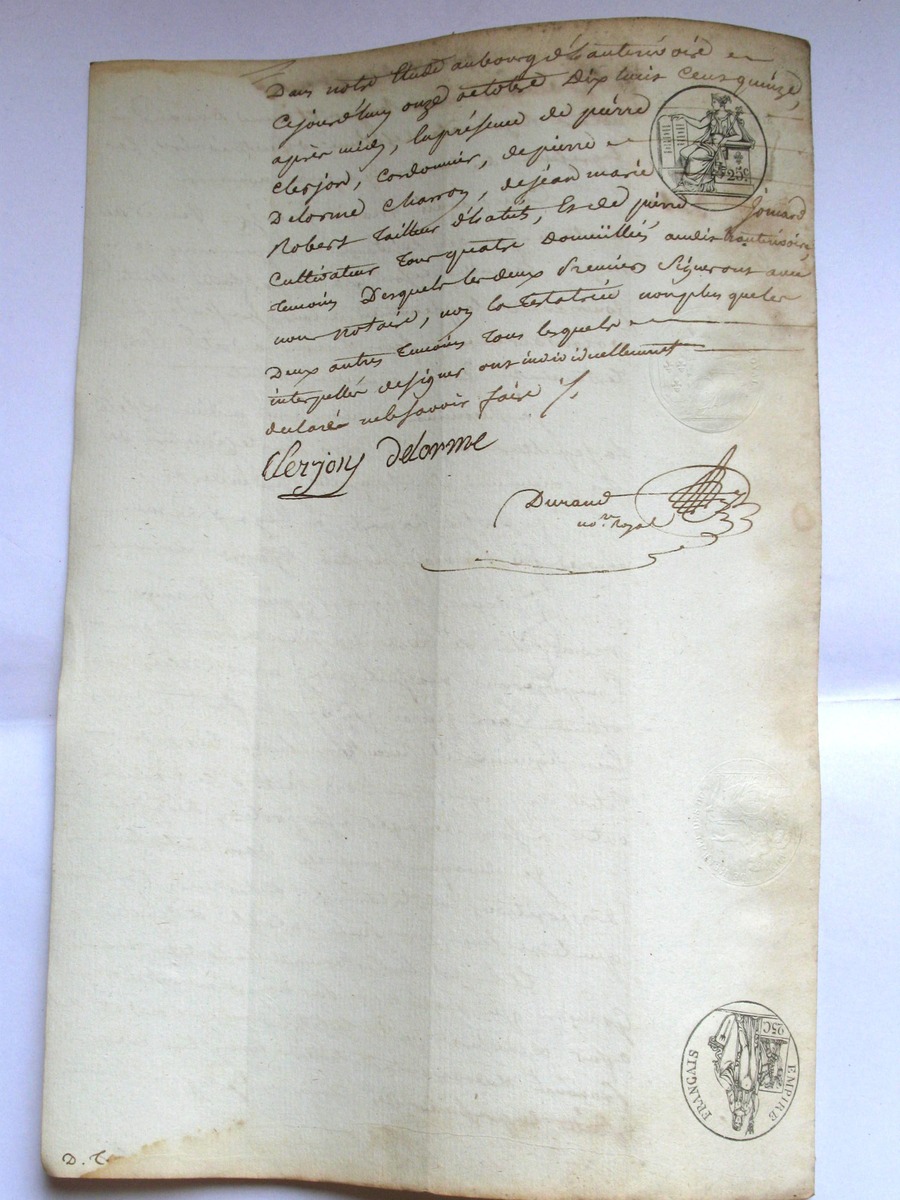 Dans notre Etude au bourg d'hauterivoire
Cejourd'huy onze octobre dix huit cent quinze,
après midy, En présence de pierre
Clerjon, Cordonnier, de pierre
Delorme Charron, de jean marie
Robert Tailleur d'habits, Et de pierre joinard
Cultivateur Tous quatre Domiciliés audit hauterivoire,
Temoins Desquels les deux premiers Signeront avec
nous notaire, non la Testatrice non plus que les
Deux autres Temoins Tous lesquels
interpellés de signer ont individuellement
declaré ne le savoir faire /.
Clerjon delorme
Durand
no.re royal
25c
EMPIRE FRANÇAIS
25C
D. T